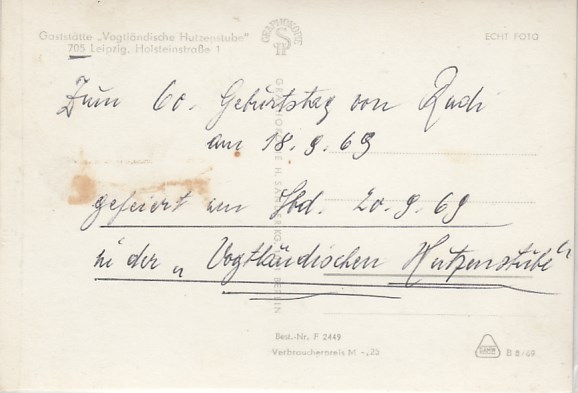 Gaststätte „Vogtländische Hutzenstube"
705 Leipzig, Holsteinstraße 1
ECHT FOTO
Zum 60. Geburtstag von Rudi
am 18. 9. 69
gefeiert am Sbd. 20. 9. 69
in der „Vogtländischen Hutzenstube"
Best.-Nr. F 2449
Verbraucherpreis M -,25